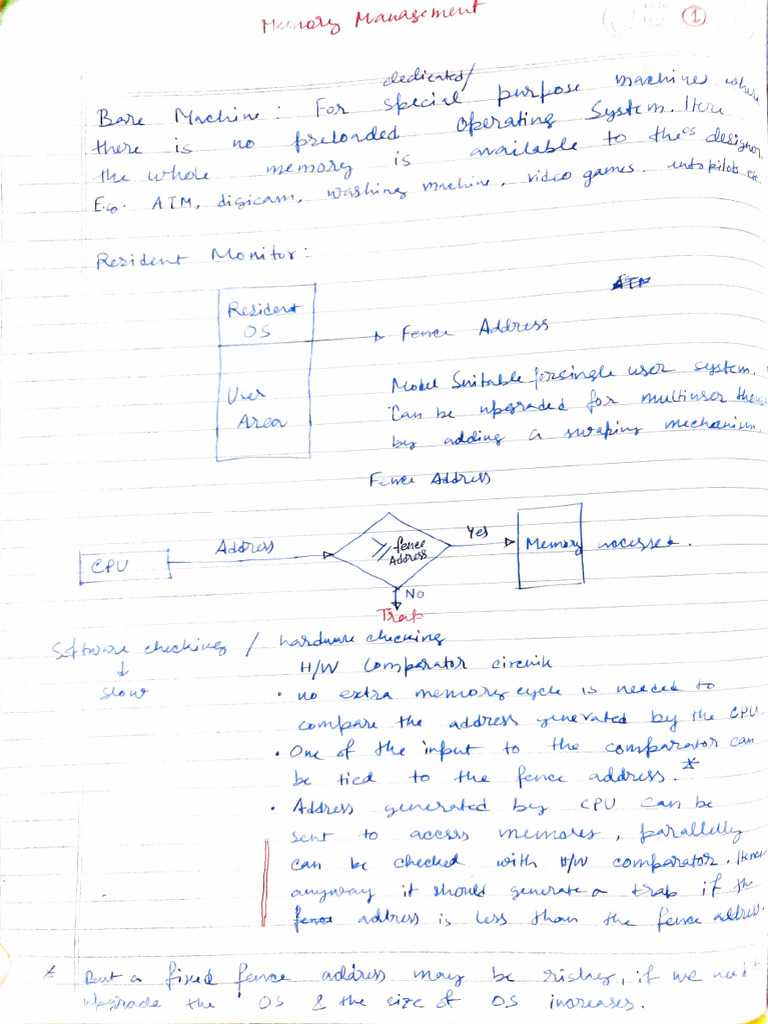 Memory Management
1
dedicated/
Bare Machine: For special purpose machine where
there is no preloaded Operating System. Here
the whole memory is available to the OS designer
Eg. ATM, digicam, washing machine, video games, autopilots etc.
Resident Monitor:
Resident
OS
Fence Address
User
Area
Model Suitable for single user system.
Can be upgraded for multiuser
by adding a swaping mechanism.
Fence Address
CPU
Address
≥ fence
Address
Yes
Memory accessed.
No
Trap
Software checking / hardware checking
slow
H/W Comparator circuit
• no extra memory cycle is needed to
compare the address generated by the CPU.
• One of the input to the comparator can
be tied to the fence address. *
• Address generated by CPU can be
sent to access memory, parallelly
can be checked with H/W comparator. Hence
anyway it should generate a trap if the
address is less than the fence address.
* But a fixed fence address may be risky, if we
upgrade the OS & the size of OS increases.